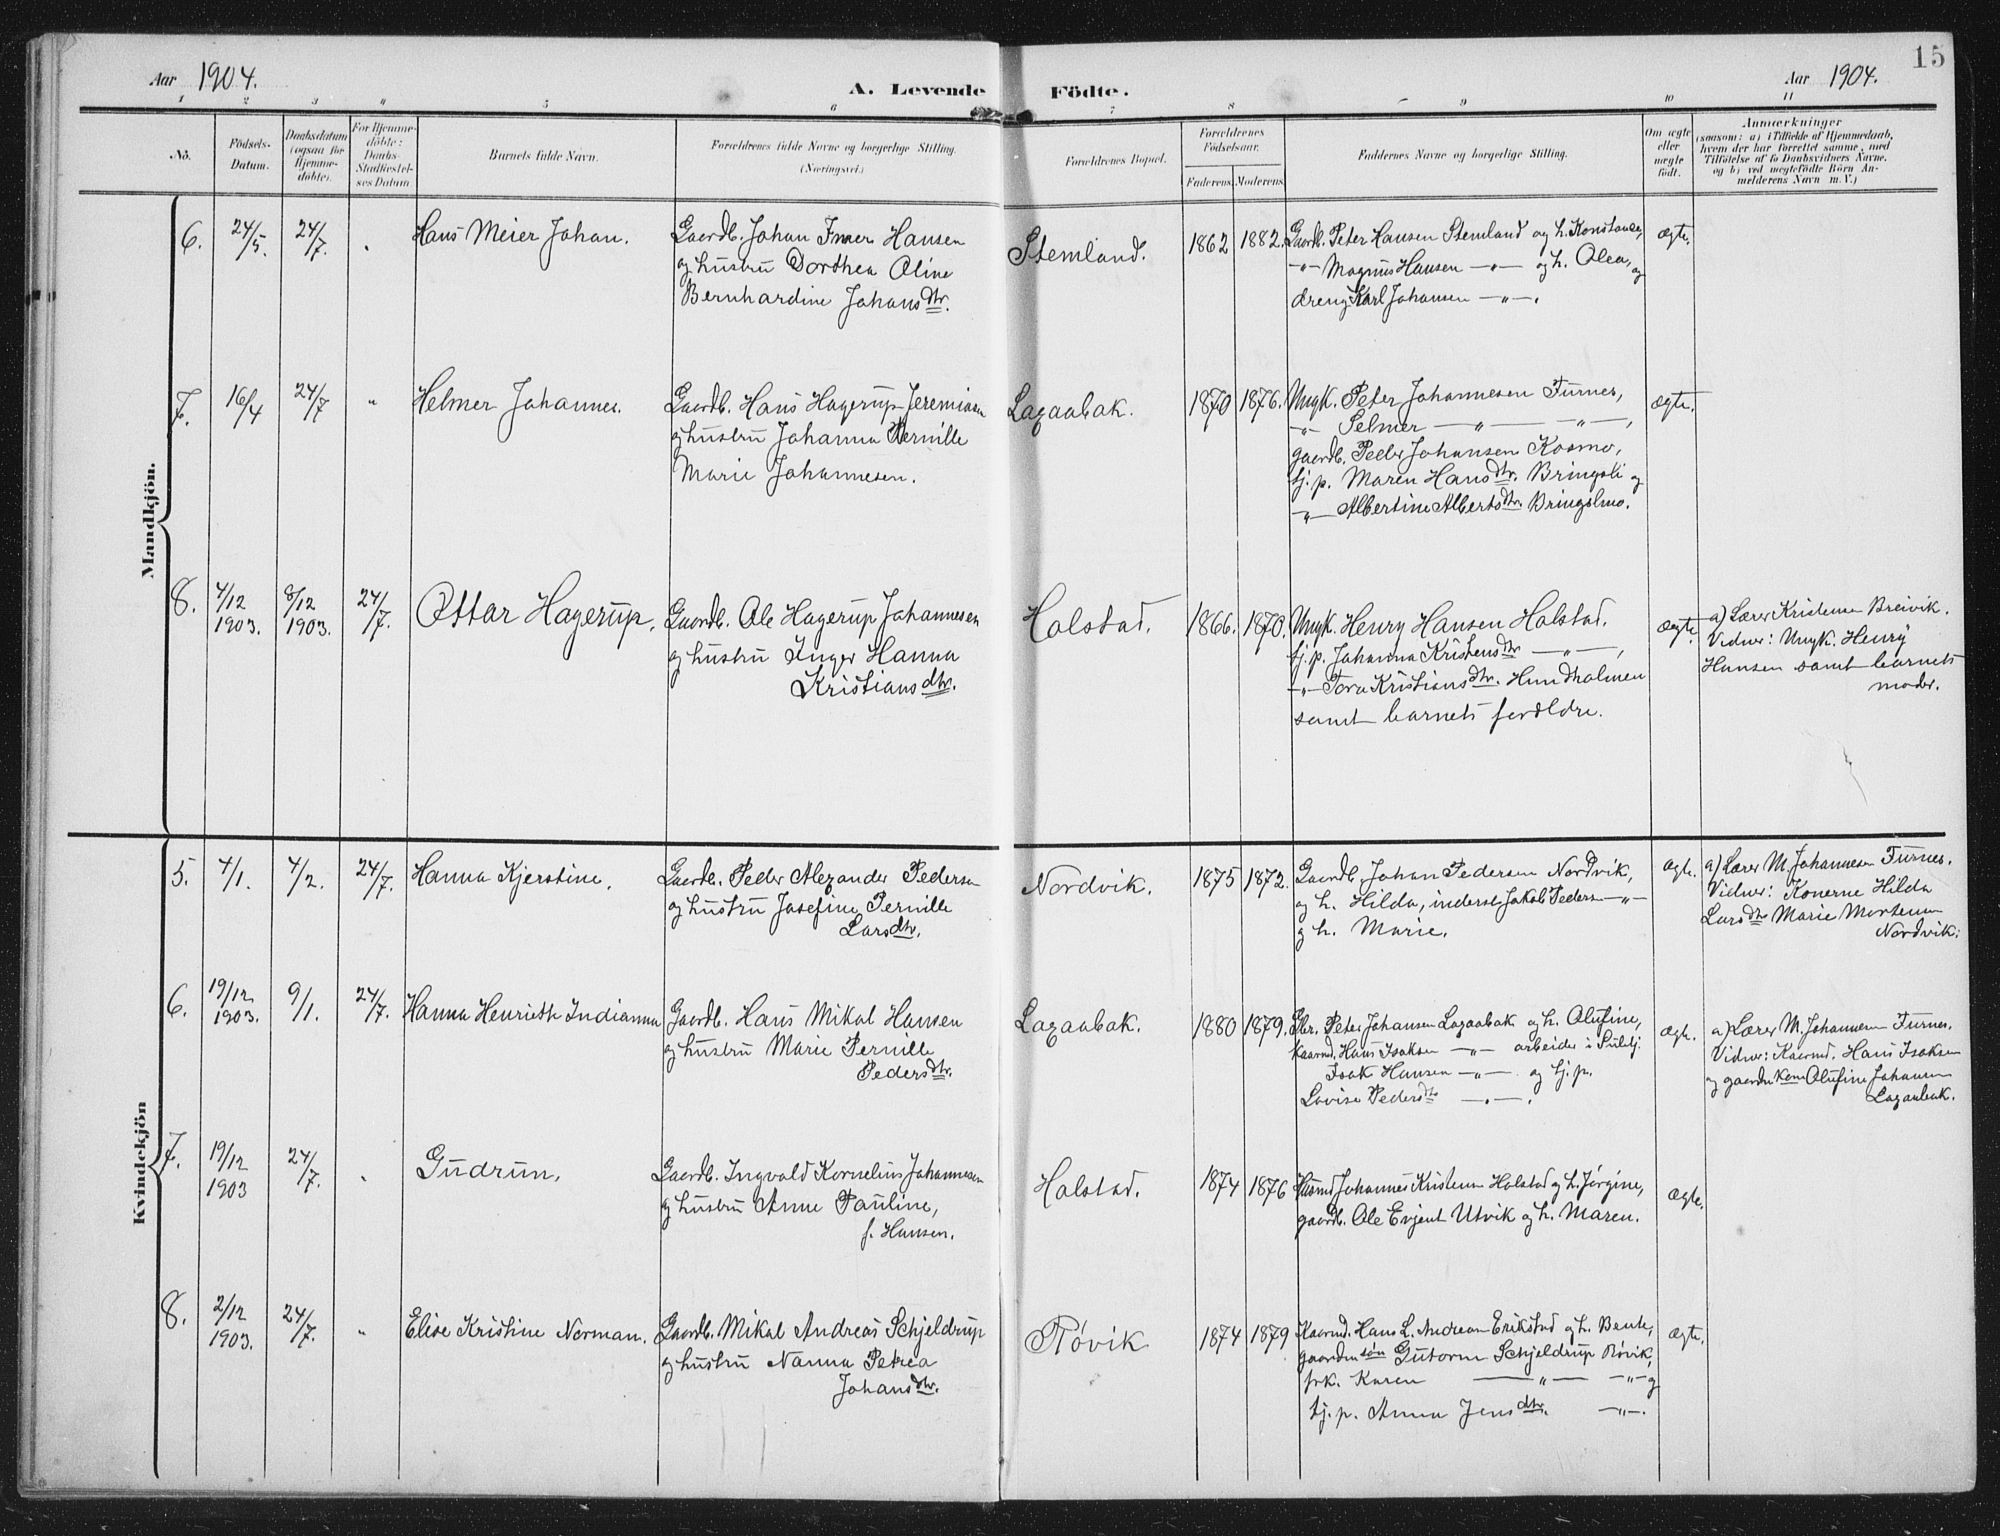 15
Aar 1904.
A. Levende Födte.
Aar 1904.
1 2 3 4 5 6 7 8 9 10 11
No.
Födsels-
Datum.
Daabsdatum
(ogsaa for
Hjemme-
døbte).
For Hjemme-
döbte:
Daabs-
Stadfæstel-
ses Datum
Barnets fulde Navn.
Forældrenes fulde Navne og borgerlige Stilling.
(Næringsvei.)
Forældrenes Bopæl.
Forældrenes
Födselsaar.
Faderens. Moderens.
Faddernes Navne og borgerlige Stilling.
Om ægte
eller
uægte
födt.
Anmærkninger
(saasom: a) i Tilfælde af Hjemmedaab,
hvem der har forrettet samme, med
Tilföielse af to Daabsvidners Navne,
og b) ved uegtefödte Börn An-
melderens Navn m. V.)
Mandkjön.
6.
24/5.
24/7.
"
Hans Meier Johan.
Gaardb. Johan Imer Hansen
og hustru Dorthea Oline
Bernhardine Johansdtr.
Stemland.
1862 1882.
Gaardb. Peter Hansen Stemland og h. Konstance,
-"- Magnus Hansen -"- og h. Olea, og
dreng Karl Johansen -"-.
ægte.
7.
16/4
24/7
"
Helmer Johannes.
Gaardb. Hans Hagerup Jeremiasen
og hustru Johanna Pernille
Marie Johannesen.
Laxaabak.
1870 1876.
Ungk. Peter Johannesen Furnes,
-"- Selmer -"- -"-,
gaardb. Peder Johansen Kosmo,
tj. p. Maren Hansdtr. Bringsli og
-"- Albertine Albertsdtr. Bringslmo.
ægte.
8.
4/12
1903.
8/12
1903.
24/7.
Ottar Hagerup.
Gaardb. Ole Hagerup Johannesen
og hustru Inger Hanna
Kristiansdtr.
Halstad.
1866. 1870.
Ungk. Henry Hansen Halstad.
tj. p. Johanna Kristensdtr -"-,
-"- Tora Kristiansdtr. Hundholmen
samt barnets forældre.
ægte.
a) Lærer Kristensen Breivik.
Vidner: Ungk. Henry
Hansen samt barnets
moder.
Kvindekjön
5.
4/1.
4/2.
24/7.
Hanna Kjerstine.
Gaardb. Peder Alexander Pedersen
og hustru Josefine Pernille
Larsdtr.
Nordvik.
1875 1872.
Gaardb. Johan Pedersen Nordvik,
og h. Hilda, inderst Jakob Peders -"-
og h. Marie.
ægte.
a) Lærer M. Johannesen Furnes.
Vidner: Konerne Hilda
Larsdtr Marie Mortensen
Nordvik.
6.
19/12
1903.
9/1.
24/7.
Hanna Henriette Indianna
Gaardb. Hans Mikal Hansen
og hustru Marie Pernille
Pedersdtr.
Laxaabak.
1880 1879.
Peter Johansen Laxaabak og h. Olufine,
kaarmd. Hans Isaksen -"- arbeider i Sulitj.
Isak Hansen -"- og tj. p.
Lovise Pedersdtr -"-.
ægte.
a) Lærer M. Johannesen Furnes.
Vidner: Kaarmd. Hans Isaksen
og gaardm.kone Olufine Johansen
Laxaabak.
7.
19/12
1903
24/7.
"
Gudrun.
Gaardb. Ingvald Kornelius Johannesen
og hustru Anne Pauline,
f. Hansen.
Halstad.
1874 1876
Husmd Johannes Kristensen Halstad og h. Jørgine,
gaardb. Ole Evjent Utvik og h. Maren.
ægte.
8.
2/12
1903.
24/7.
"
Elise Kristine Norman.
Gaardb. Mikal Andreas Schjeldrup
og hustru Nanna Petrea
Johansdtr.
Røvik
1874 1879
Kaarmd. Hans L. Andreasen Erikstad og h. Bente,
gaardm.søn Gutorm Schjeldrup Røvik,
frk. Karen -"- -"- og
tj. p. Anna Jensdtr. -"-.
ægte.